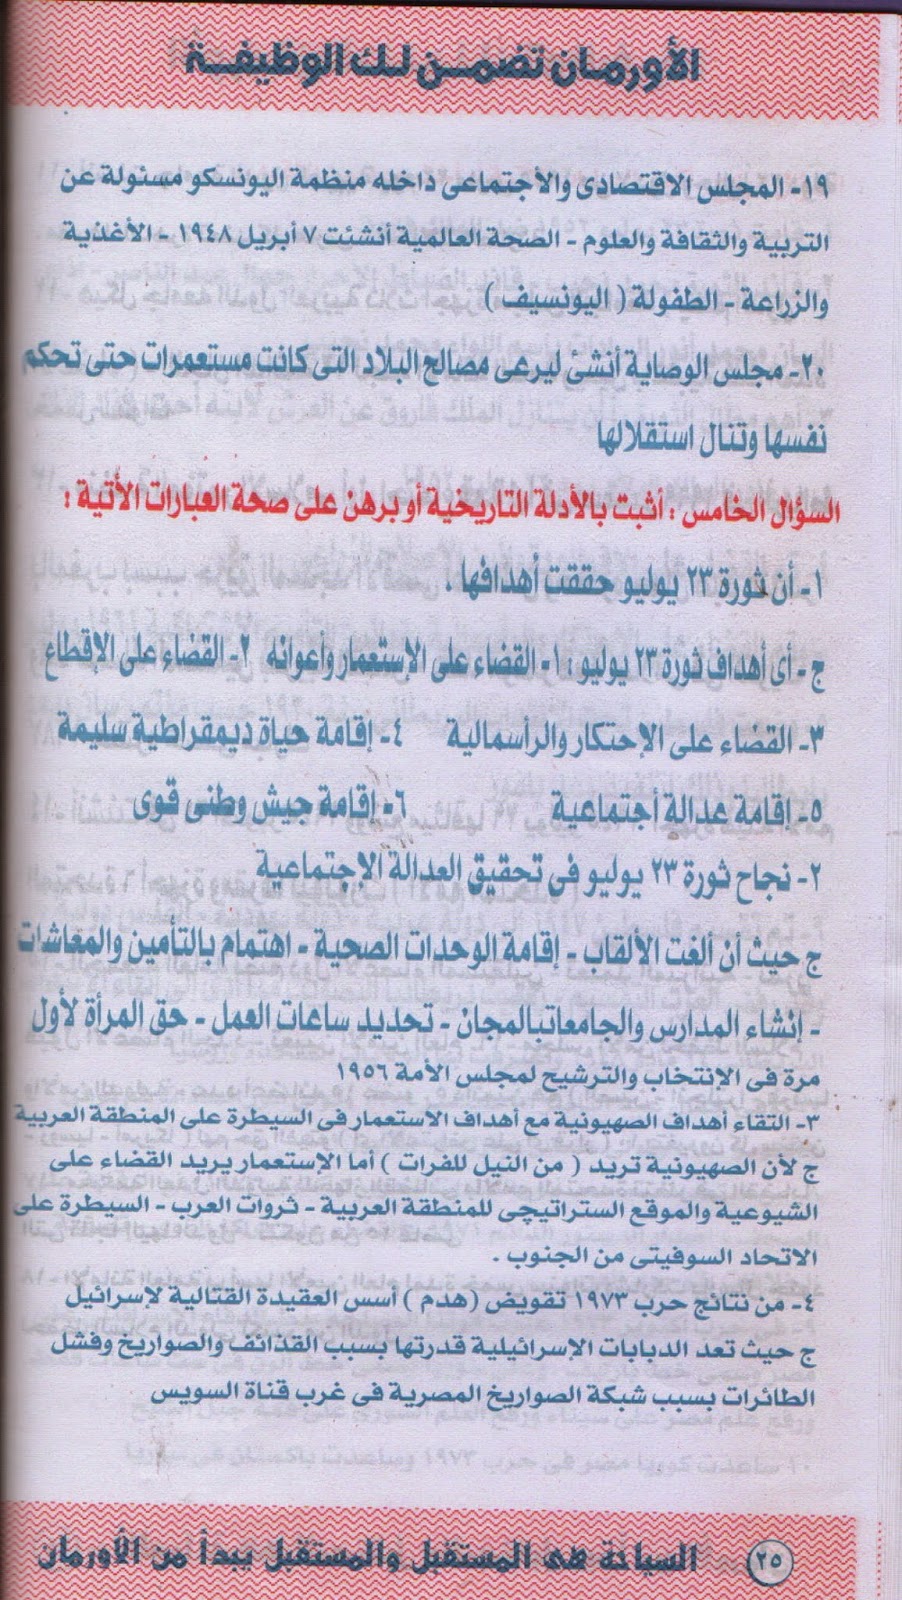 الأورمان تضمن لك الوظيفة
١٩- المجلس الاقتصادى والأجتماعى داخله منظمة اليونسكو مسئولة عن
التربية والثقافة والعلوم - الصحة العالمية أنشئت ٧ أبريل ١٩٤٨ - الأغذية
والزراعة - الطفولة ( اليونسيف )
٢٠- مجلس الوصاية أنشئ ليرعى مصالح البلاد التى كانت مستعمرات حتى تحكم
نفسها وتنال استقلالها
السؤال الخامس : أثبت بالأدلة التاريخية أو برهن على صحة العبارات الأتية :
١- أن ثورة ٢٣ يوليو حققت أهدافها .
ج - أى أهداف ثورة ٢٣ يوليو : ١- القضاء على الإستعمار وأعوانه ٢- القضاء على الإقطاع
٣- القضاء على الإحتكار والرأسمالية ٤- إقامة حياة ديمقراطية سليمة
٥- إقامة عدالة أجتماعية ٦- إقامة جيش وطنى قوى
٢- نجاح ثورة ٢٣ يوليو فى تحقيق العدالة الإجتماعية
ج حيث أن ألغت الألقاب - إقامة الوحدات الصحية - اهتمام بالتأمين والمعاشات
- إنشاء المدارس والجامعاتبالمجان - تحديد ساعات العمل - حق المرأة لأول
مرة فى الإنتخاب والترشيح لمجلس الأمة ١٩٥٦
٣- التقاء أهداف الصهيونية مع أهداف الاستعمار فى السيطرة على المنطقة العربية
ج لأن الصهيونية تريد ( من النيل للفرات ) أما الإستعمار يريد القضاء على
الشيوعية والموقع الستراتيچى للمنطقة العربية - ثروات العرب - السيطرة على
الاتحاد السوفيتى من الجنوب .
٤- من نتائج حرب ١٩٧٣ تقويض (هدم ) أسس العقيدة القتالية لإسرائيل
ج حيث تعد الدبابات الإسرائيلية قدرتها بسبب القذائف والصواريخ وفشل
الطائرات بسبب شبكة الصواريخ المصرية فى غرب قناة السويس
٢٥ السياحة هى المستقبل والمستقبل يبدأ من الأورمان